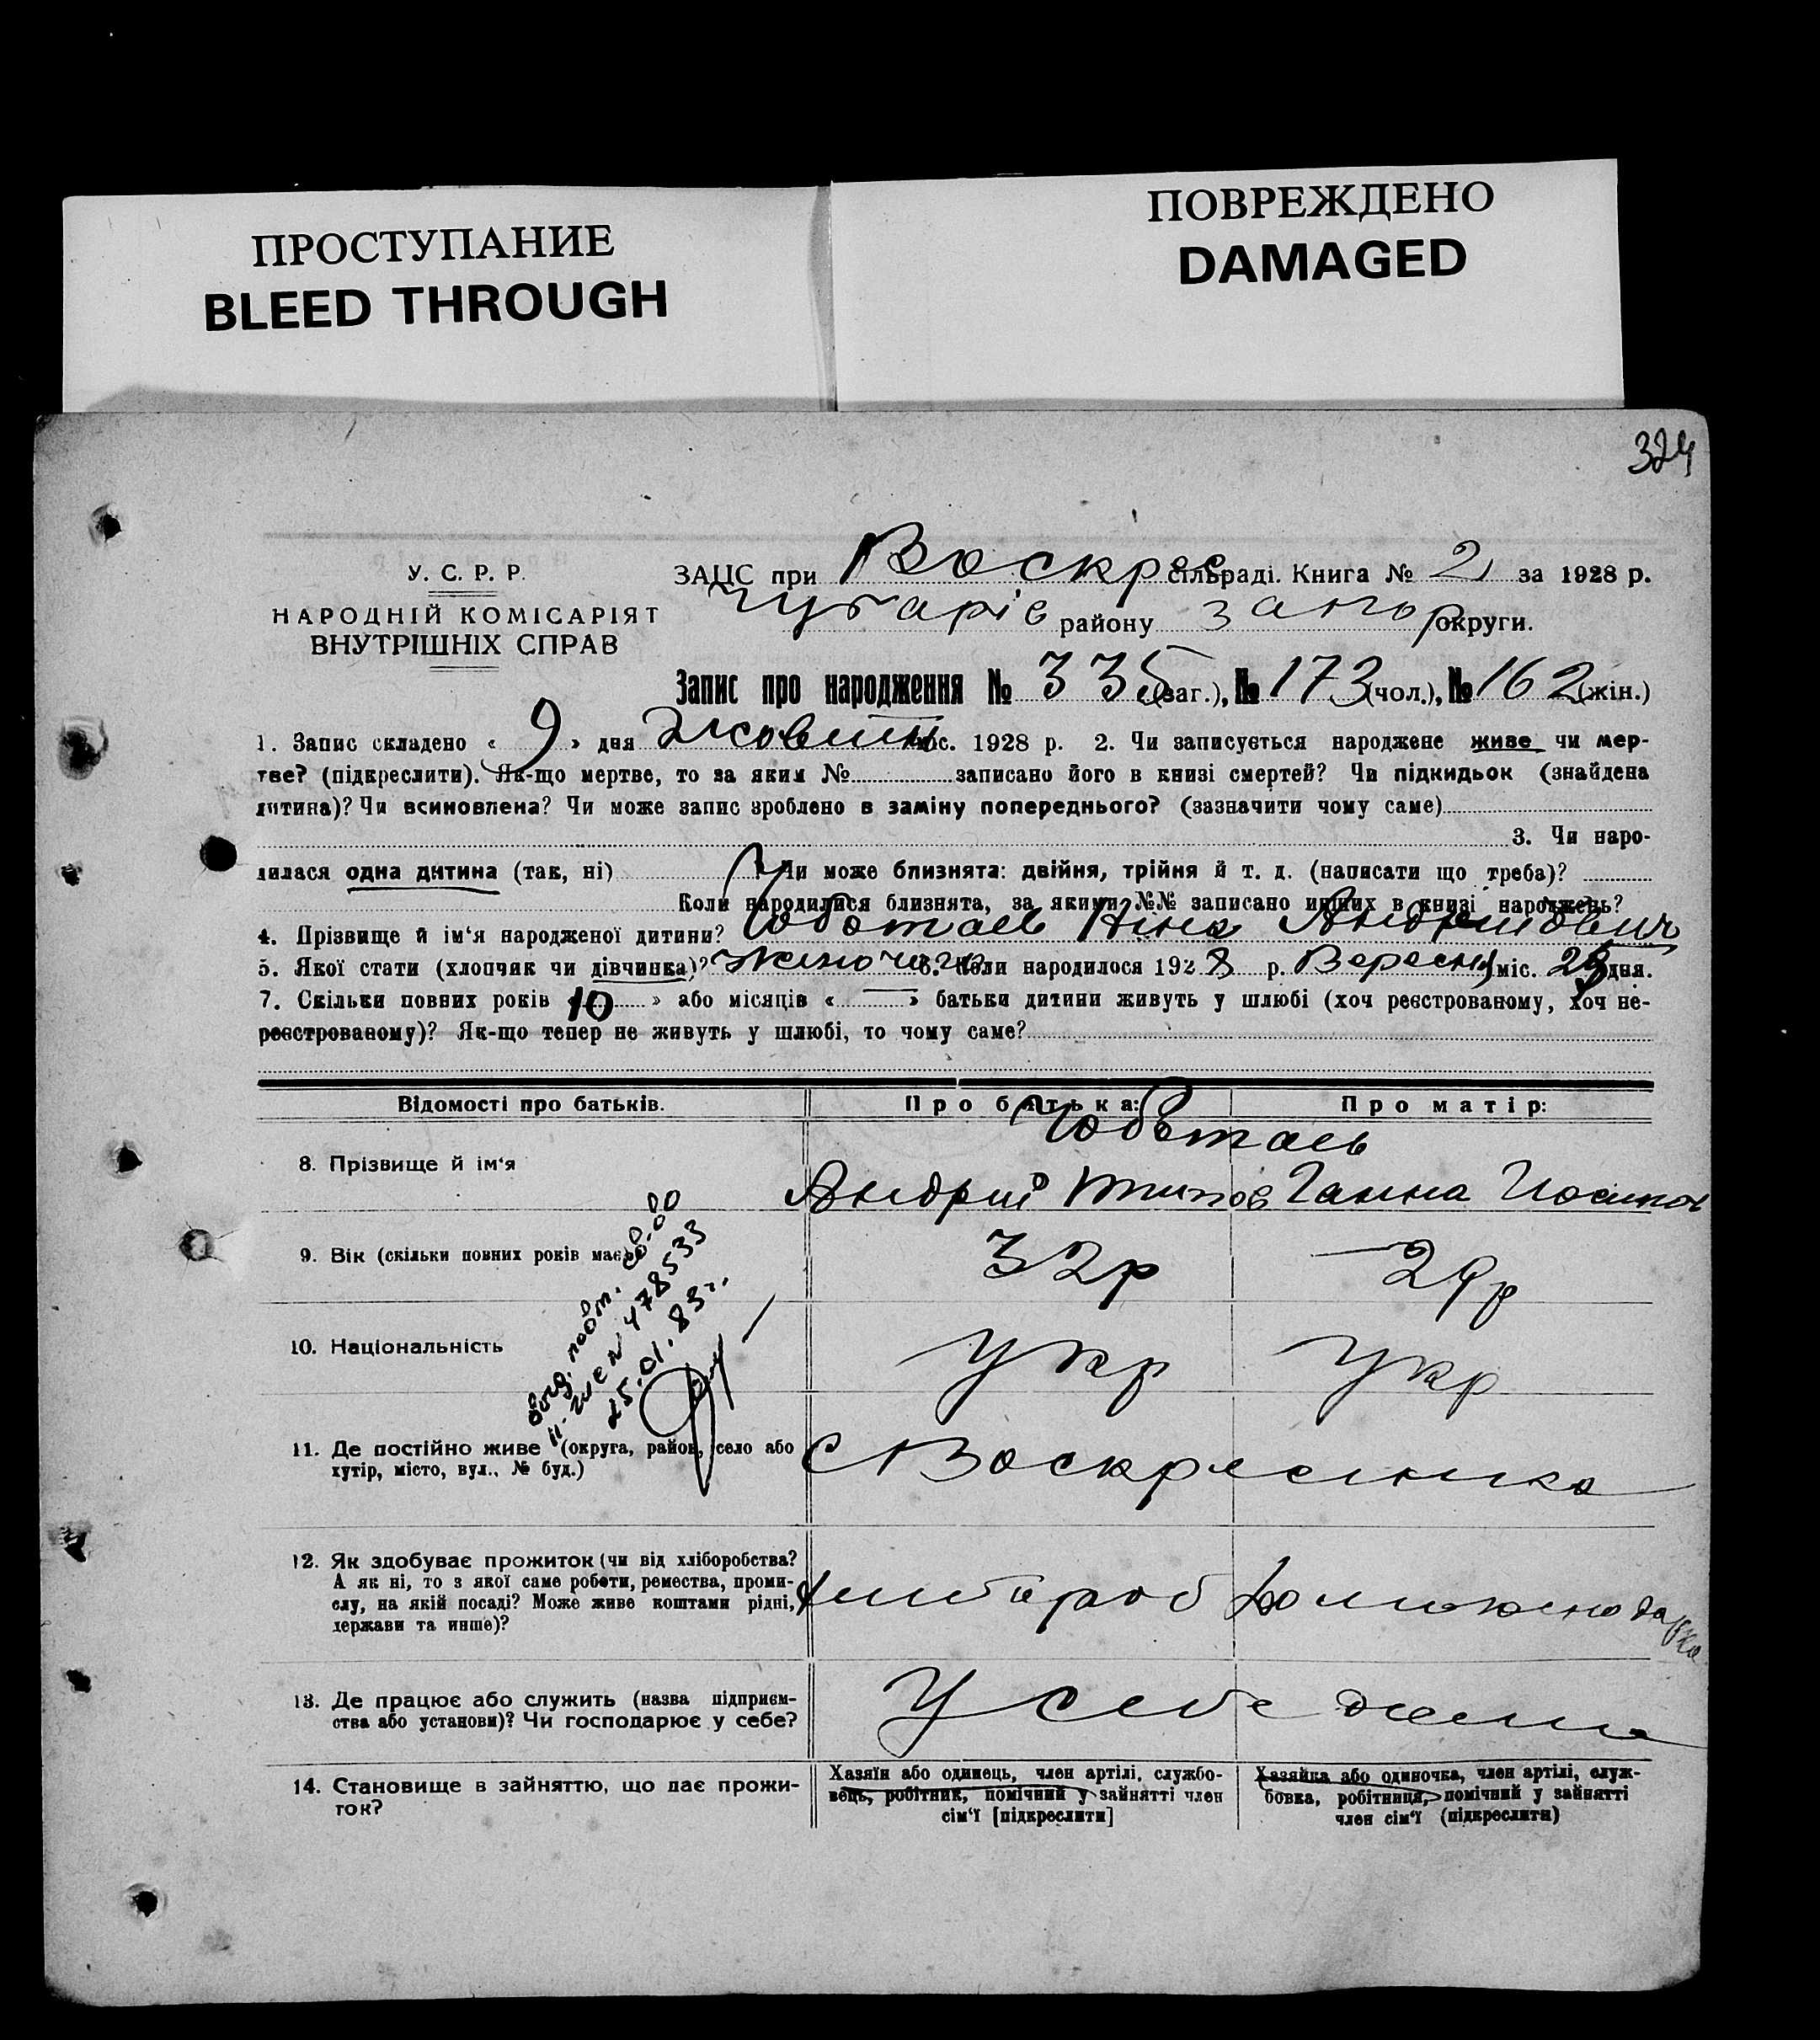 ПРОСТУПАНИЕ
BLEED THROUGH
ПОВРЕЖДЕНО
DAMAGED
324
У. С. Р. Р.
НАРОДНІЙ КОМІСАРІЯТ
ВНУТРІШНІХ СПРАВ
ЗАЦС при Воскрес сільраді. Книга № 2 за 1928 р.
Чубарів району Запор округи.
Запис про народження № 335 (заг.), № 173 (чол.), № 162 (жін.)
1. Запис складено « 9 » дня Жовтн міс. 1928 р. 2. Чи записується народжене живе чи мер-
тве? (підкреслити). Як-що мертве, то за яким № записано його в книзі смертей? Чи підкидьок (знайдена
дитина)? Чи всиновлена? Чи може запис зроблено в заміну попереднього? (зазначити чому саме)
3. Чи наро-
дилася одна дитина (так, ні) Чи може близнята: двійня, трійня й т. д. (написати що треба)?
Коли народилися близнята, за якими №№ записано инших в книзі народжень?
4. Прізвище й ім'я народженої дитини? Чоботаев Ніна
5. Якої стати (хлопчик чи дівчинка)? жиночого 6. Коли народилося 1928 р. Вересня міс. дня.
7. Скільки повних років « 10 » або місяців « — » батьки дитини живуть у шлюбі (хоч реєстрованому, хоч не-
реєстрованому)? Як-що тепер не живуть у шлюбі, то чому саме?
Відомості про батьків.
Про батька:
Про матір:
8. Прізвище й ім'я
Чоботаев
Андрій Ганна Йосипов
9. Вік (скільки повних років має)
32р
29р
10. Національність
Укр
Укр
478533
25.01.83г.
11. Де постійно живе (округа, район, село або
хутір, місто, вул., № буд.)
С Воскресенка
12. Як здобуває прожиток (чи від хліборобства?
А як ні, то з якої саме роботи, ремества, проми-
слу, на якій посаді? Може живе коштами рідні,
держави та инше)?
хлибороб
13. Де працює або служить (назва підприєм-
ства або установи)? Чи господарює у себе?
У себе дома
14. Становище в зайняттю, що дає прожи-
ток?
Хазяїн або одинець, член артілі, службо-
вець, робітник, помічний у зайнятті член
сім'ї [підкреслити]
Хазяйка або одиночка, член артілі, служ-
бовка, робітниця, помічний у зайнятті
член сім'ї (підкреслити)